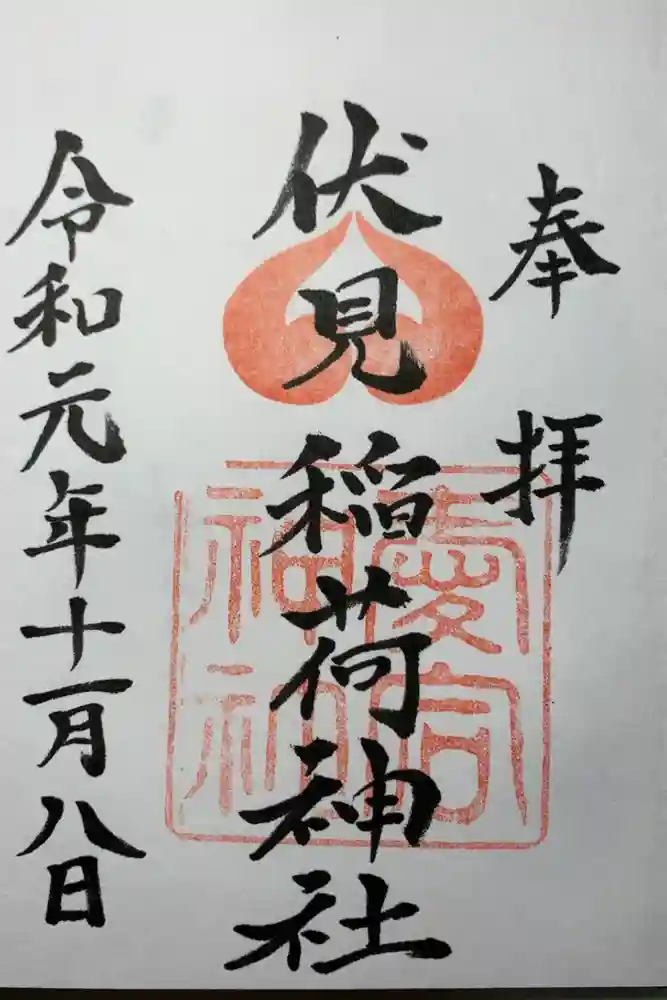 奉拝
伏見稲荷神社
愛宕
神社
令和元年十一月八日